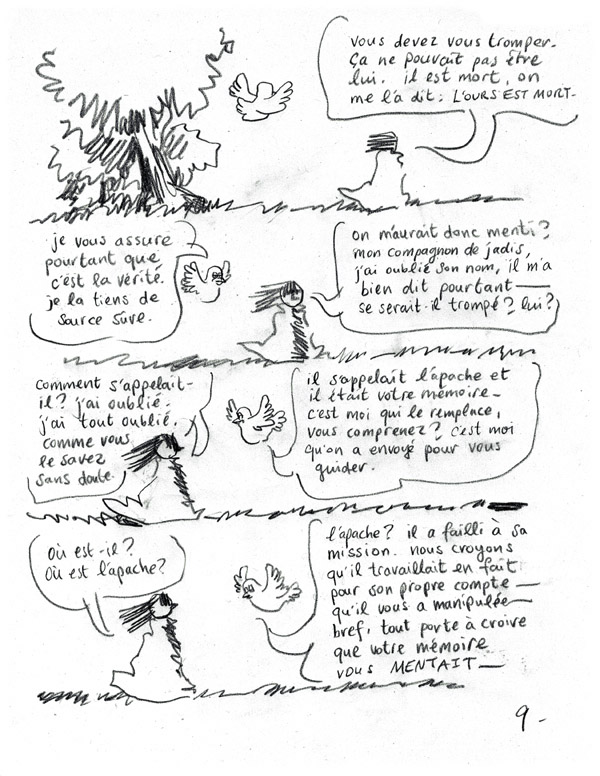 vous devez vous tromper.
ça ne pouvait pas être
lui. il est mort, on
me l'a dit: L'OURS EST MORT-
je vous assure
pourtant que
c'est la vérité.
je la tiens de
source sûre.
on m'aurait donc menti?
mon compagnon de jadis,
j'ai oublié son nom, il m'a
bien dit pourtant —
se serait-il trompé? lui?
comment s'appelait-
il? j'ai oublié.
j'ai tout oublié.
comme vous
le savez
sans doute.
il s'appelait l'apache et
il était votre mémoire-
c'est moi qui le remplace,
vous comprenez? c'est moi
qu'on a envoyé pour vous
guider.
Où est-il?
Où est l'apache?
l'apache? il a failli à sa
mission. nous croyons
qu'il travaillait en fait
pour son propre compte —
qu'il vous a manipulée —
bref, tout porte à croire
que votre mémoire
vous MENTAIT —
9-